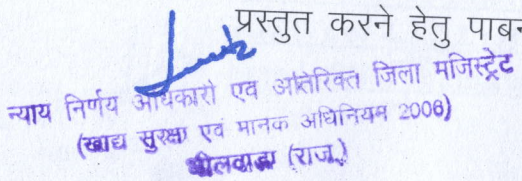 प्रस्तुत करने हेतु
न्याय निर्णय अधिकारी एवं अतिरिक्त जिला मजिस्ट्रेट
(खाद्य सुरक्षा एवं मानक अधिनियम 2006)
भीलवाडा (राज.)